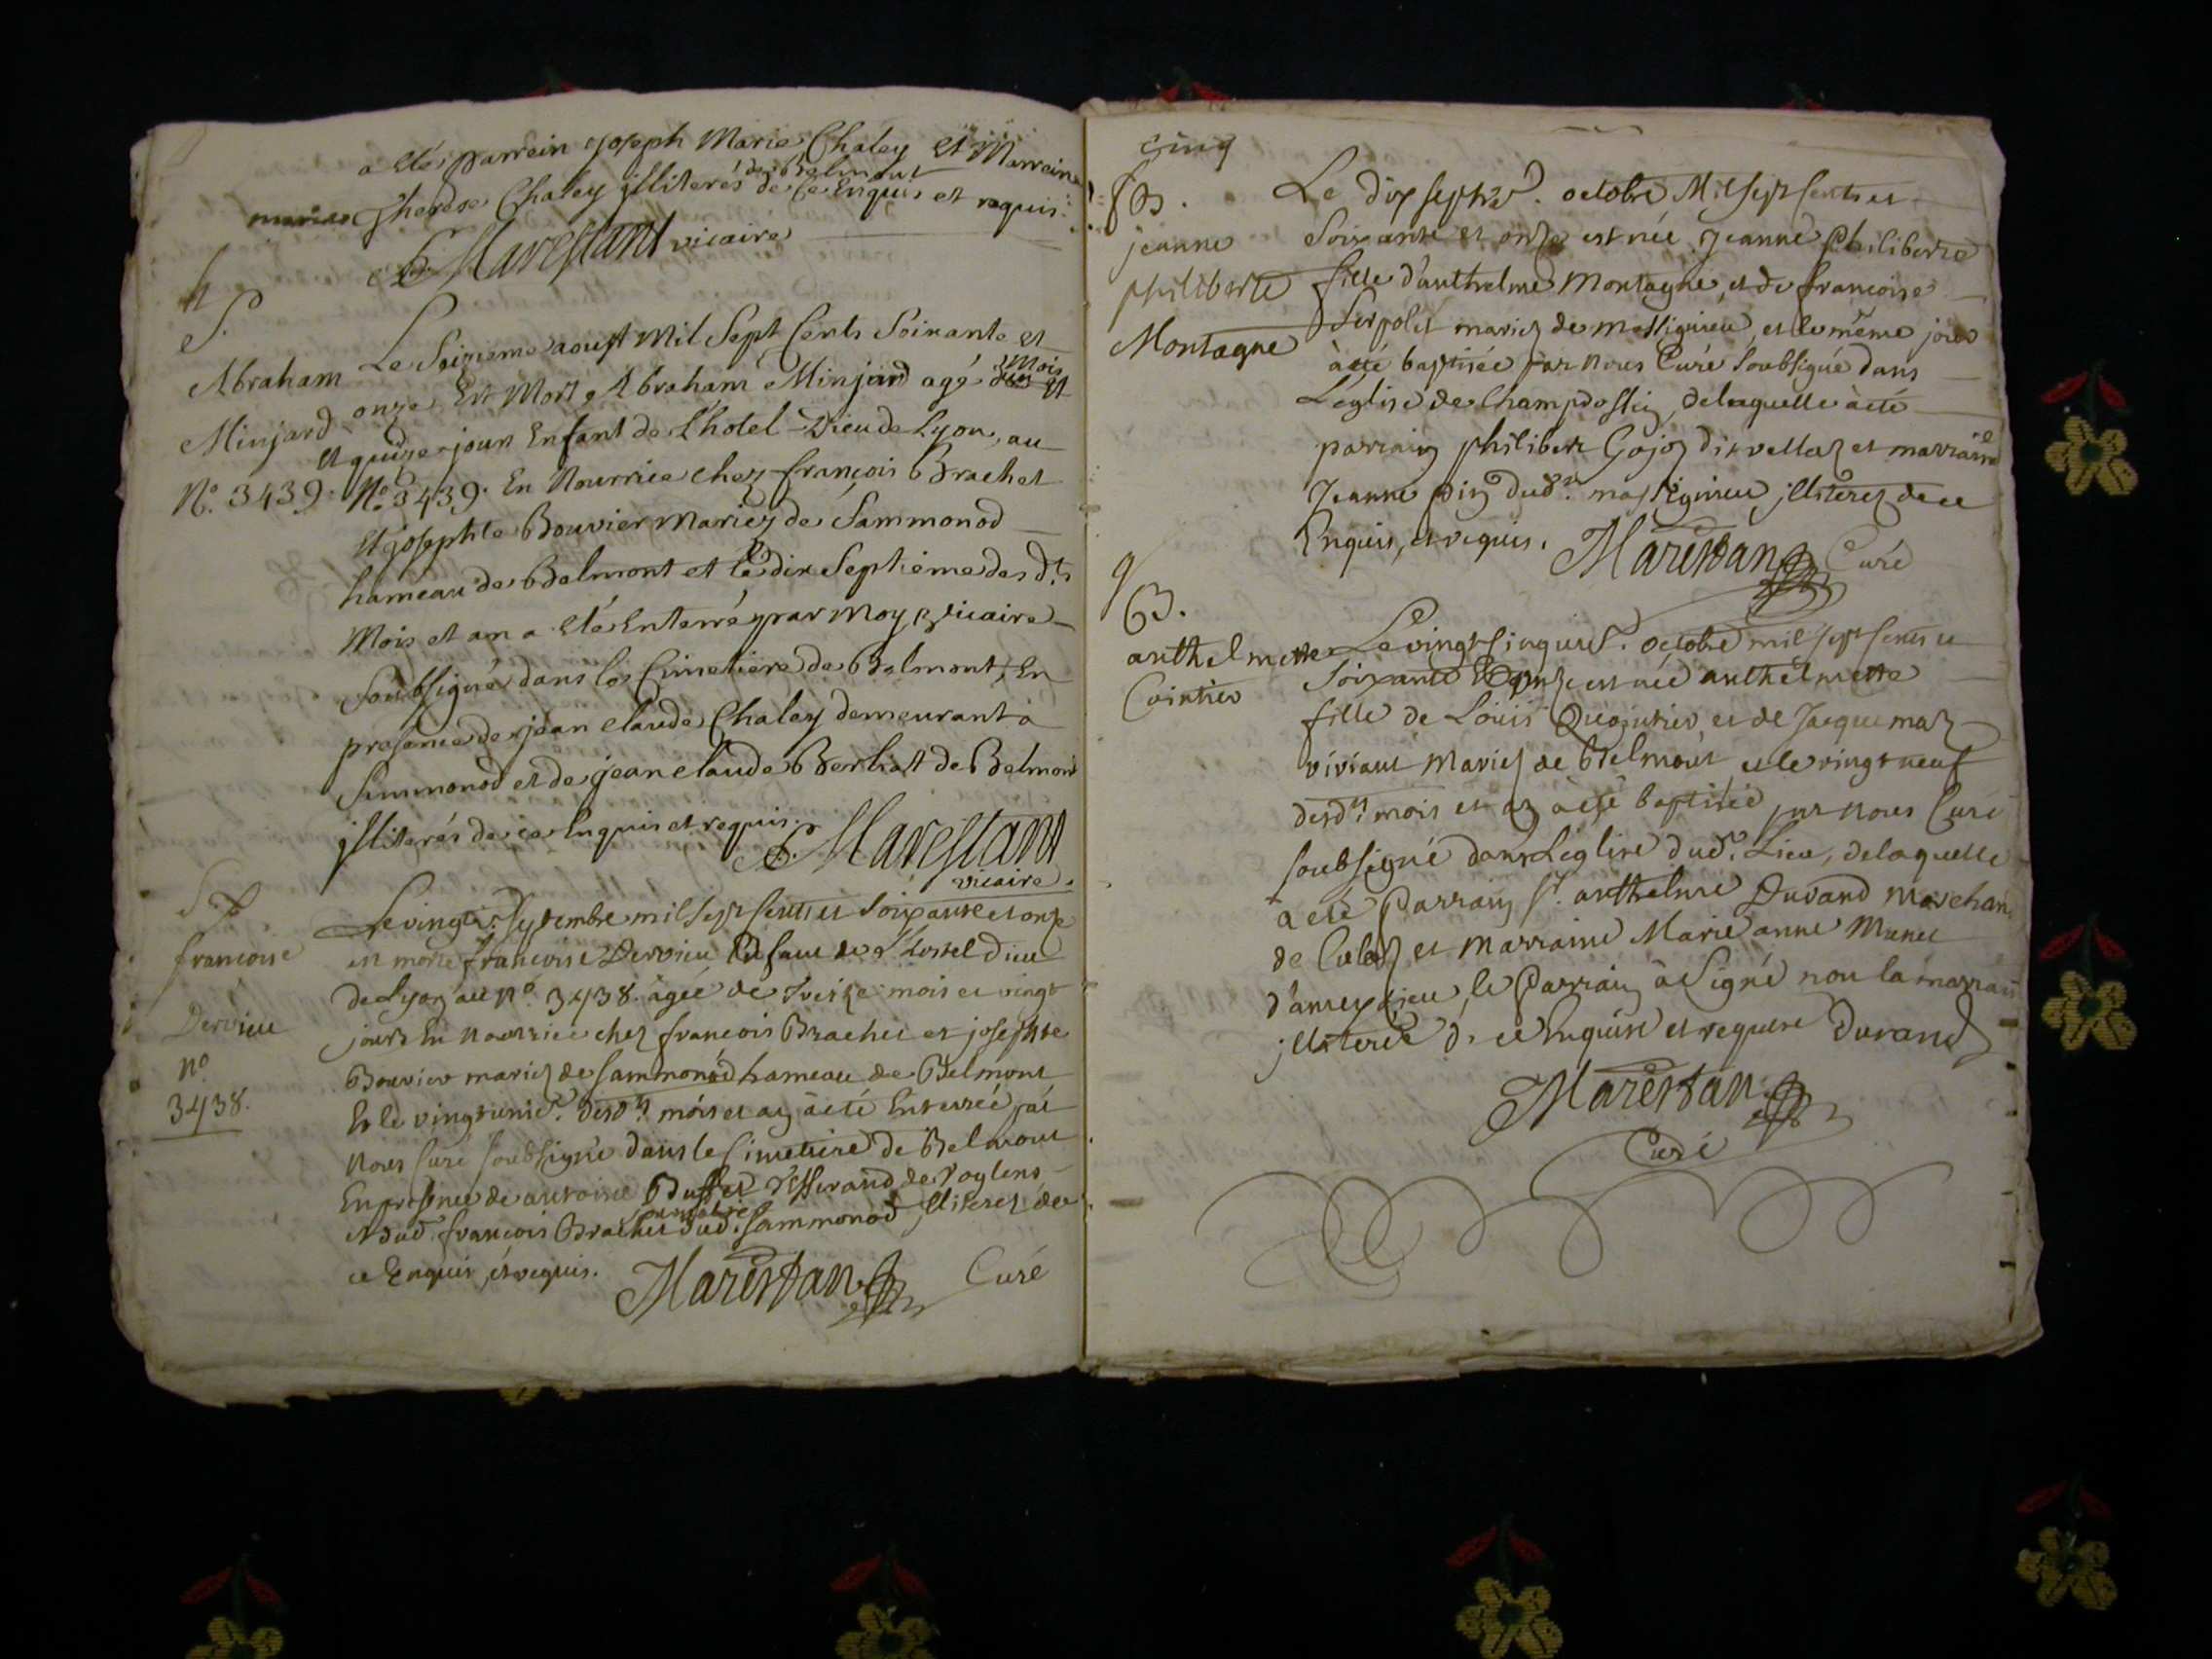 a eté parrein joseph Marie Chaley et Marreine
de Belmont
Therese Chaley illiterés de ce Enquis et requis.
Marestant vicaire
S.
Abraham
Minjard
N.º 3439.
Le Seizieme aoust Mil Sept Cents Soixante et
onze Est Mort Abraham Minjard agé
mois
et quinze jours Enfant de L'hotel-Dieu de Lyon, au
N.º 3439. En Nourrice chez françois Brachet
et josephte Bouvier mariez de Sammonod
hameau de Belmont et le dix Septieme des d.ts
Mois et an a eté Enterré par Moy vicaire
Soubsigné dans le Cimetiere de Belmont, En
presence de jean claude Chaley demeurant a
Sammonod et de jean claude Berliat de Belmont
illiterés de ce Enquis et requis.
Marestant
vicaire.
S
francoise
Dervieu
nº
3438.
Le vingt septembre mil sept cents et soixante et onze
est morte francoise Dervieu Enfant de l'hostel Dieu
de Lyon au nº. 3438. agée de treize mois et vingt
jours En nourrice chez francois Brachet et josephte
Bouvier mariez de Sammonod hameau de Belmont
Et le vingt unie. desd.ts mois et an à eté Enterrée par
nous Curé soubsigné dans le Cimetiere de Belmont
En presence de antoine Buffet de Voglens
et dud. francois Brachet dud. Sammonod, illiterez de
ce Enquis, et requis.
Marestan Curé
cinq
B.
jeanne
philiberte
Montagne
Le dix sept octobre Mil sept cents et
Soixante et onze est née Jeanne Philiberte
fille d'anthelme Montagne, et de francoise
Serpolet mariez de massignieu, et le même jour
à eté baptisée par nous Curé Soubsigné dans
L'église de Champdossin, de laquelle à eté
parrain philibert Gojoz dit vellaz et marraine
Jeanne pin dud.t massignieu, illiterez de ce
Enquis, et requis. Marestan Curé
9
B.
anthelmette
Cointier
Le vingt cinq octobre mil sept cents et
Soixante et onze est née anthelmette
fille de Louis Quointier, et de Jacquemaz
viviant Mariez de Belmont, et le vingt neuf
desd.ts mois et an à eté baptisée par nous Curé
soubsigné dans L'eglise dud. Lieu, de laquelle
à eté Parrain s.r anthelme Durand Marchand
de Culoz et Marraine Marie anne Munet
d'ameyzieu, le Parrain à Signé non la marraine
illiterée de ce Enquise et requise Durand
Marestan
Curé